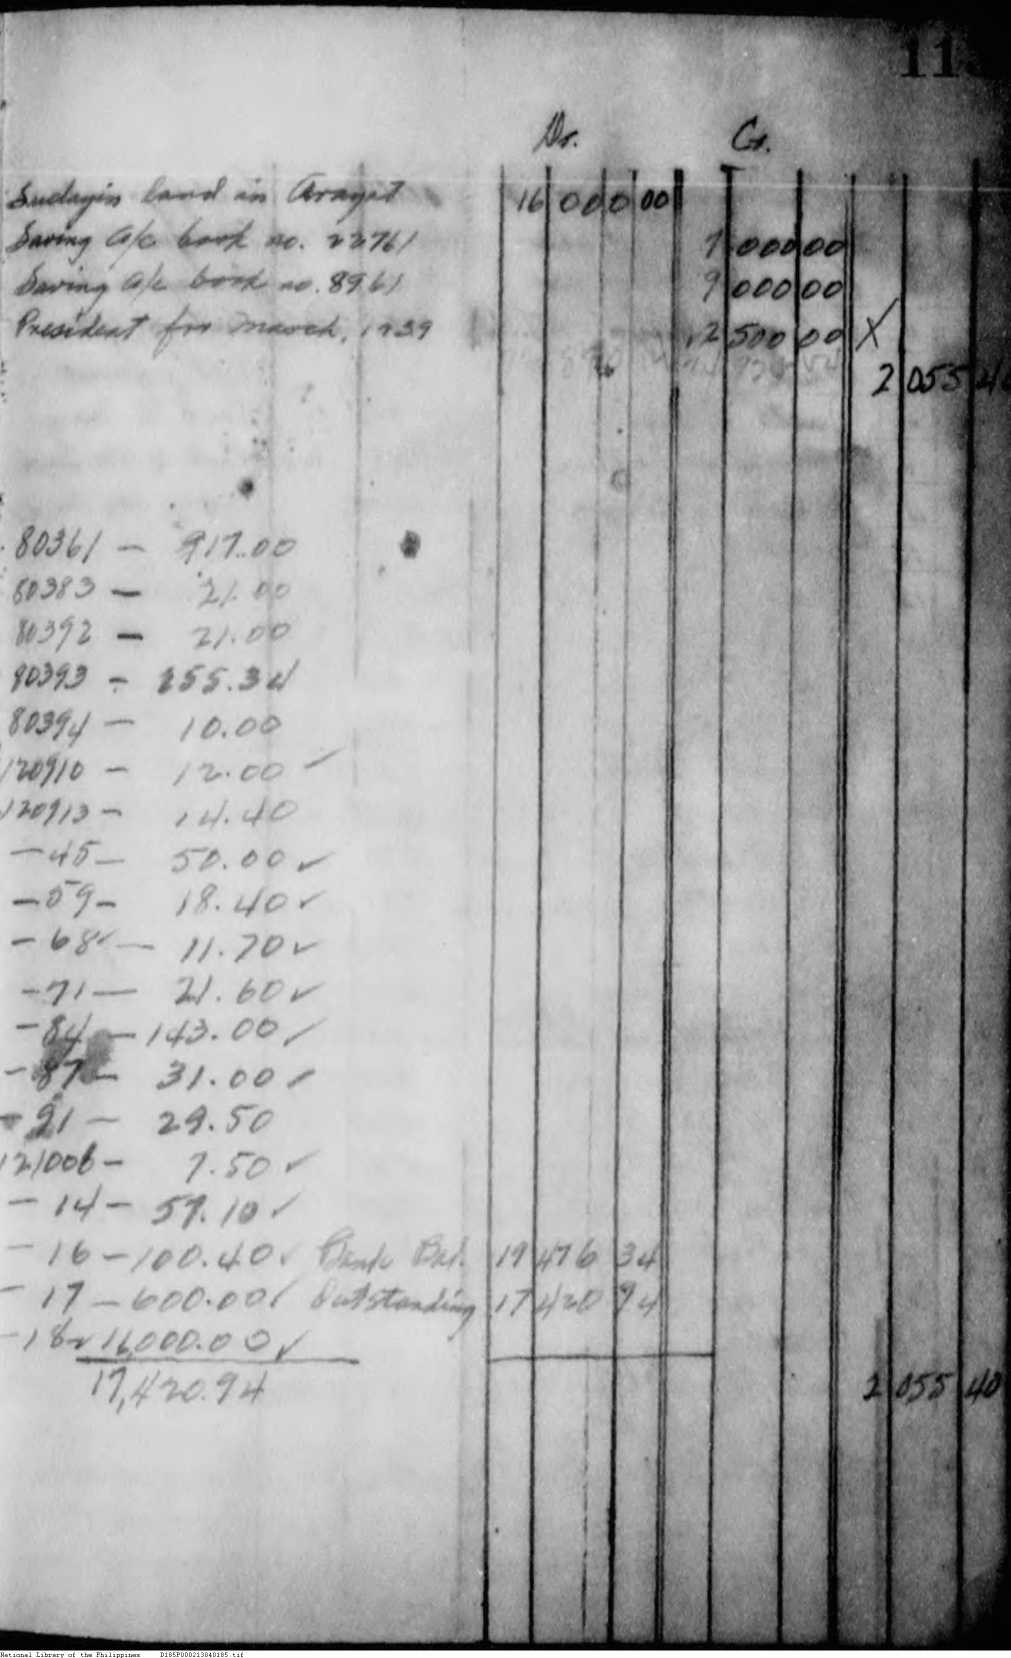 11
Dr. Cr.
land in Arayat 16 000 00
Saving a/c book no. 22761 7 000 00
Saving a/c book no. 8961 9 000 00
President for March, 1939 2 500 00 X
2 055 40
80361 — 917.00
80383 — 21.00
80392 — 21.00
80393 - 255.34
80394 — 10.00
120910 - 12.00 ✓
120913 - 14.40
— 45 — 50.00 ✓
— 59 - 18.40 ✓
— 68 ✓ — 11.70 ✓
— 71 — 21.60 ✓
— 84 — 143.00 ✓
— 87 — 31.00 ✓
— 91 — 29.50
121006 - 7.50 ✓
— 14 — 59.10 ✓
— 16 — 100.40 ✓ Bank Bal. 19 476 34
— 17 — 600.00 ✓ Outstanding 17 420 94
— 18 ✓ 16,000.00 ✓
17,420.94 2 055 40
National Library of the Philippines D185P000213040185.tif